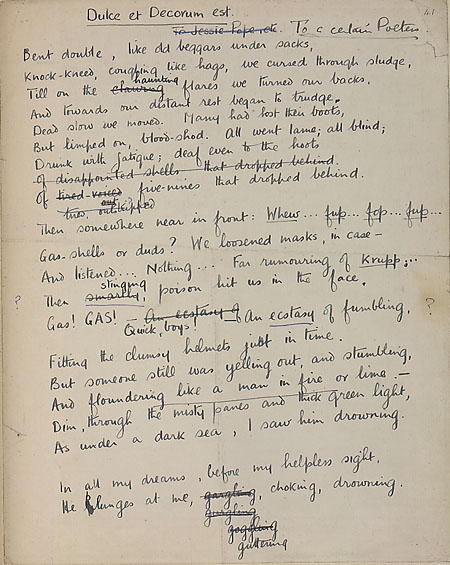 Dulce et Decorum est.
To Jessie Pope etc. To a certain Poetess.
41
Bent double, like old beggars under sacks,
Knock-kneed, coughing like hags, we cursed through sludge,
haunting
Till on the clawing flares we turned our backs,
And towards our distant rest began to trudge.
Dead slow we moved. Many had lost their boots,
But limped on, blood-shod. All went lame; all blind;
Drunk with fatigue; deaf even to the hoots
Of disappointed shells that dropped behind.
Of tired-voiced five-nines that dropped behind.
outstripped
Then somewhere near in front: Whew... fup... fop... fup...
Gas-shells or duds? We loosened masks, in case –
And listened.... Nothing.... Far rumouring of Krupp;...
stinging
? Then smartly, poison hit us in the face.
Gas! GAS! – An ecstasy of – An ecstasy of fumbling, ?
Quick, boys!
Fitting the clumsy helmets just in time.
But someone still was yelling out, and stumbling,
And floundering like a man in fire or lime. –
Dim, through the misty panes and thick green light,
As under a dark sea, I saw him drowning.
In all my dreams, before my helpless sight,
He plunges at me, gargling, choking, drowning.
gurgling
goggling
guttering